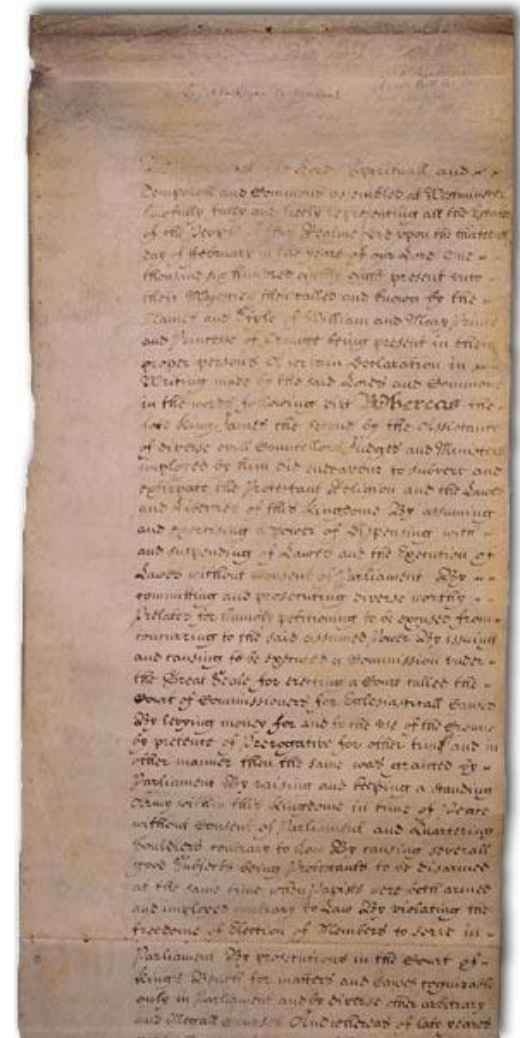 the Lords Spirituall and
Temporall and Commons assembled at Westminster
lawfully fully and freely representing all the Estates
of the People of this Realme did upon the thirteenth
day of February in the yeare of our Lord One
thousand six hundred eighty eight present unto
their Majesties then called and known by the
Names and Style of William and Mary Prince
and Princesse of Orange being present in their
proper persons a certain Declaration in
Writing made by the said Lords and Commons
in the words following vizt Whereas the
late King James the Second by the Assistance
of diverse evill Councellors Judges and Ministers
imployed by him did endeavour to subvert and
extirpate the Protestant Religion and the Lawes
and Liberties of this Kingdome By assuming
and exercising a power of Dispensing with
and suspending of Lawes and the Execution of
Lawes without Consent of Parliament By
committing and prosecuting diverse worthy
Prelates for humbly petitioning to be excused from
concurring to the said assumed Power By issuing
and causing to be executed a Commission under
the Great Seale for erecting a Court called the
Court of Commissioners for Ecclesiasticall Causes
By levying money for and to the use of the Crowne
by pretence of Prerogative for other time and in
other manner then the same was granted by
Parliament By raising and keeping a standing
Army within this Kingdome in time of Peace
without Consent of Parliament and Quartering
Souldiers contrary to Law By causing severall
good Subjects being Protestants to be disarmed
at the same time when Papists were both armed
and imployed contrary to Law By violating the
freedome of Election of Members to serve in
Parliament By prosecutions in the Court of
Kings Bench for matters and Causes cognizable
only in Parliament and by diverse other arbitrary
and illegall Courses And whereas of late yeares